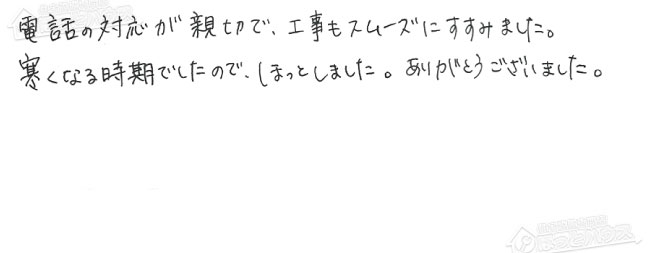 電話の対応が親切で、工事もスムーズにすすみました。
寒くなる時期でしたので、ほっとしました。ありがとうございました。